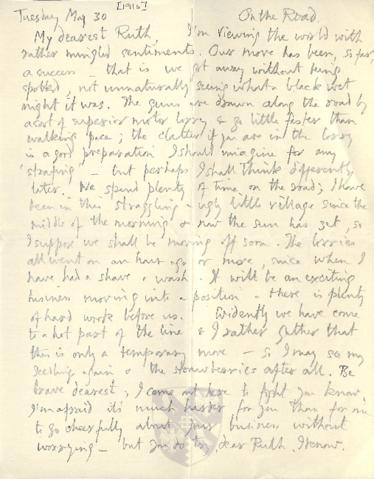 Tuesday May 30 [1916] On the Road.
My dearest Ruth, I'm viewing the world with
rather mingled sentiments. Our move has been, so far,
a success – that is we got away without being
spotted, not unnaturally seeing what a black wet
night it was. The guns are drawn along the road by
a sort of superior motor lorry & go little faster than
walking pace; the clatter if you are in the lorry
is a good preparation I should imagine for any
"strafing" – but perhaps I shall think differently
later. We spend plenty of time on the road; I have
been in this straggling ugly little village since the
middle of the morning & now the sun has set, so
I suppose we shall be moving off soon. The lorries
all went on an hour ago or more, since when I
have had a shave & wash. It will be an exciting
business moving into a position – there is plenty
of hard work before us. Evidently we have come
to a hot part of the line & I rather gather that
this is only a temporary move – so I may see my
again & the strawberries after all. Be
brave dearest; I came out here to fight you know,
I'm afraid it's much harder for you than for me
to go cheerfully about your business without
worrying – but you do it, dear Ruth, I know.